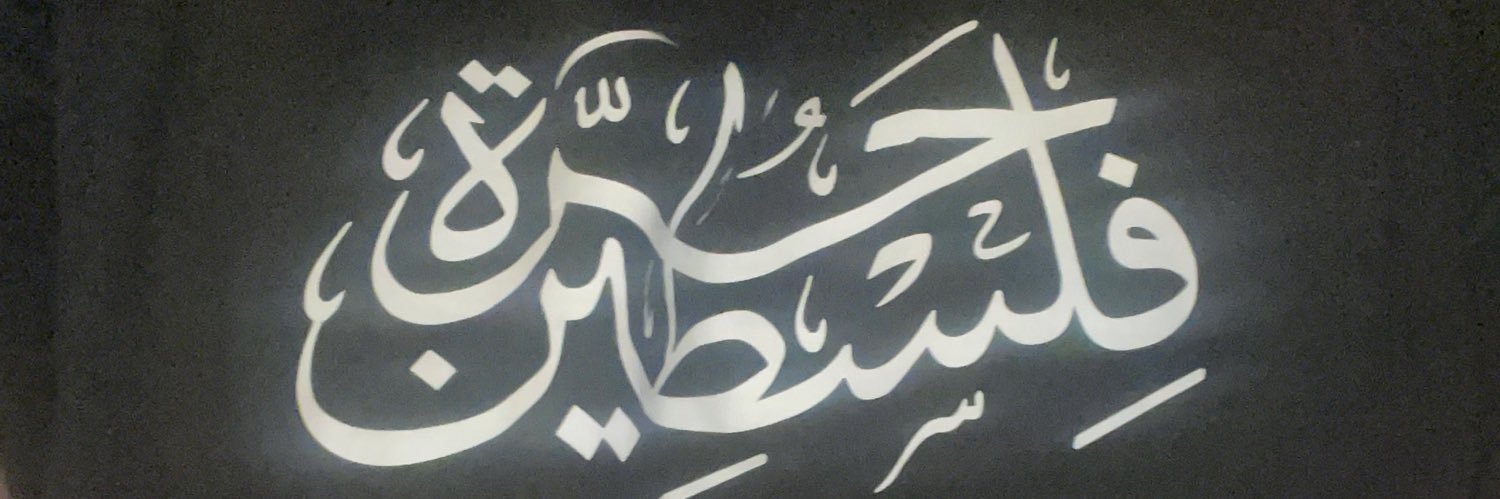 فِلِسْطِين حُرَّة